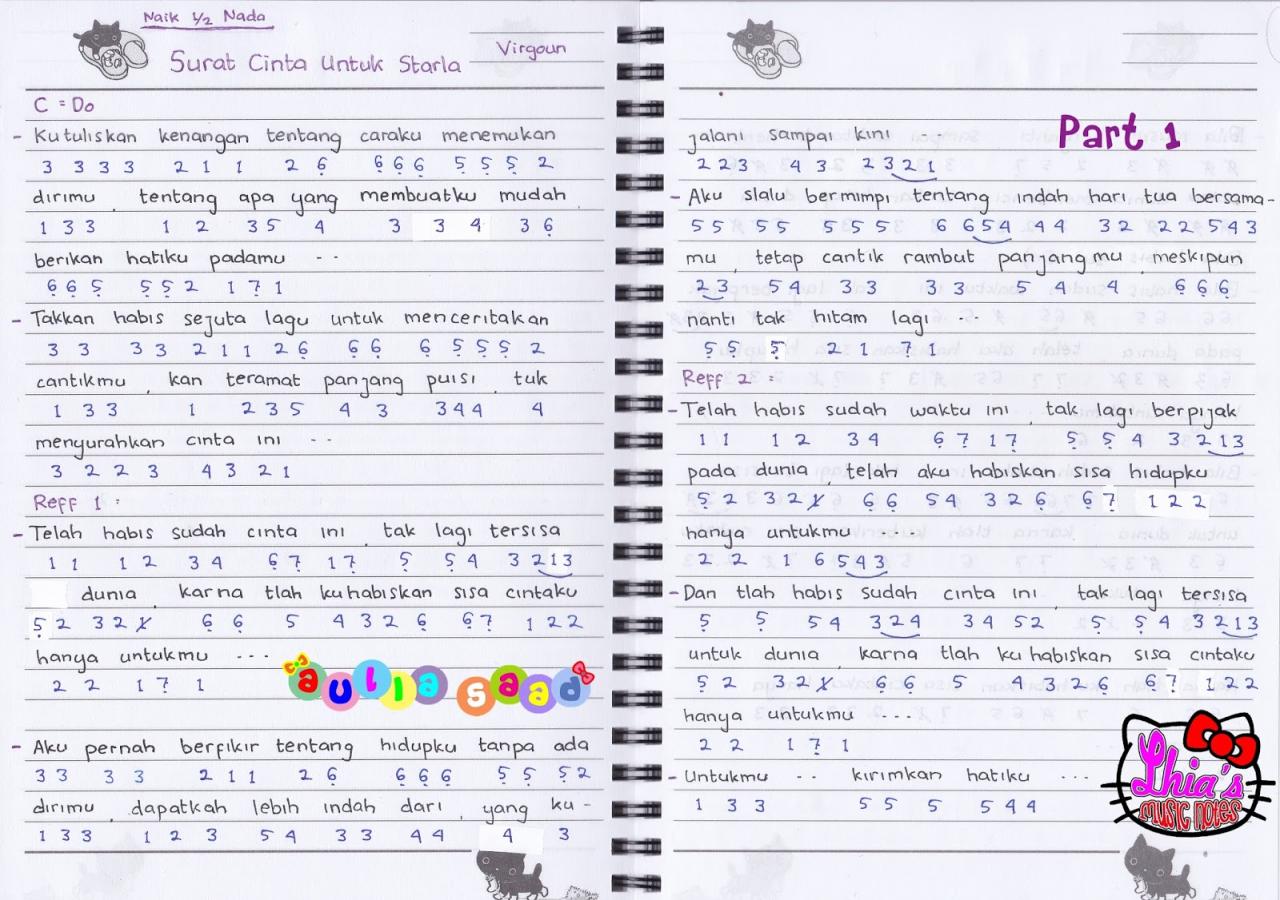 Naik 1/2 Nada
Surat Cinta Untuk Starla
Virgoun
C = Do
- Ku tuliskan kenangan tentang caraku menemukan
3 3 3 3 2 1 1 2 6̣ 6̣ 6̣ 6̣ 5̣ 5̣ 5̣ 2
dirimu , tentang apa yang membuatku mudah
1 3 3 1 2 3 5 4 3 3 4 3 6̣
berikan hatiku padamu - -
6̣ 6̣ 5̣ 5̣ 5̣ 2 1 7̣ 1
- Takkan habis sejuta lagu untuk menceritakan
3 3 3 3 2 1 1 2 6̣ 6̣ 6̣ 6̣ 5̣ 5̣ 5̣ 2
cantikmu , kan teramat panjang puisi , tuk
1 3 3 1 2 3 5 4 3 3 4 4 4
menyurahkan cinta ini - -
3 2 2 3 4 3 2 1
Reff 1 :
- Telah habis sudah cinta ini , tak lagi tersisa
1 1 1 2 3 4 6̣ 7̣ 1 7̣ 5̣ 5̣ 4 3 2 1 3
dunia , karna tlah ku habiskan sisa cintaku
5̣ 2 3 2 1̸ 6̣ 6̣ 5 4 3 2 6̣ 6̣ 7̣ 1 2 2
hanya untukmu - - -
2 2 1 7̣ 1
aulia saad
- Aku pernah berfikir tentang hidupku tanpa ada
3 3 3 3 2 1 1 2 6̣ 6̣ 6̣ 6̣ 5̣ 5̣ 5̣ 2
dirimu , dapatkah lebih indah dari , yang ku -
1 3 3 1 2 3 5 4 3 3 4 4 4 3
Part 1
jalani sampai kini - -
2 2 3 4 3 2 3 2 1
- Aku slalu bermimpi tentang indah hari tua bersama -
5 5 5 5 5 5 5 6 6 5 4 4 4 3 2 2 2 5 4 3
mu , tetap cantik rambut panjang mu , meskipun
2 3 5 4 3 3 3 3 5 4 4 6̣ 6̣ 6̣
nanti tak hitam lagi - - -
5̣ 5̣ 5̣ 2 1 7̣ 1
Reff 2 :
- Telah habis sudah waktu ini , tak lagi berpijak
1 1 1 2 3 4 6̣ 7̣ 1 7̣ 5̣ 5̣ 4 3 2 1 3
pada dunia , telah aku habiskan sisa hidupku
5̣ 2 3 2 1̸ 6̣ 6̣ 5 4 3 2 6̣ 6̣ 7̣ 1 2 2
hanya untukmu - - - -
2 2 1 6 5 4 3
- Dan tlah habis sudah cinta ini , tak lagi tersisa
5̣ 5̣ 5 4 3 2 4 3 4 5 2 5̣ 5̣ 4 3 2 1 3
untuk dunia , karna tlah ku habiskan sisa cintaku
5̣ 2 3 2 1̸ 6̣ 6̣ 5 4 3 2 6̣ 6̣ 7̣ 1 2 2
hanya untukmu - - -
2 2 1 7̣ 1
- Untukmu - - kirimkan hatiku - - -
1 3 3 5 5 5 5 4 4
Lhia's
MUSIC NOTES